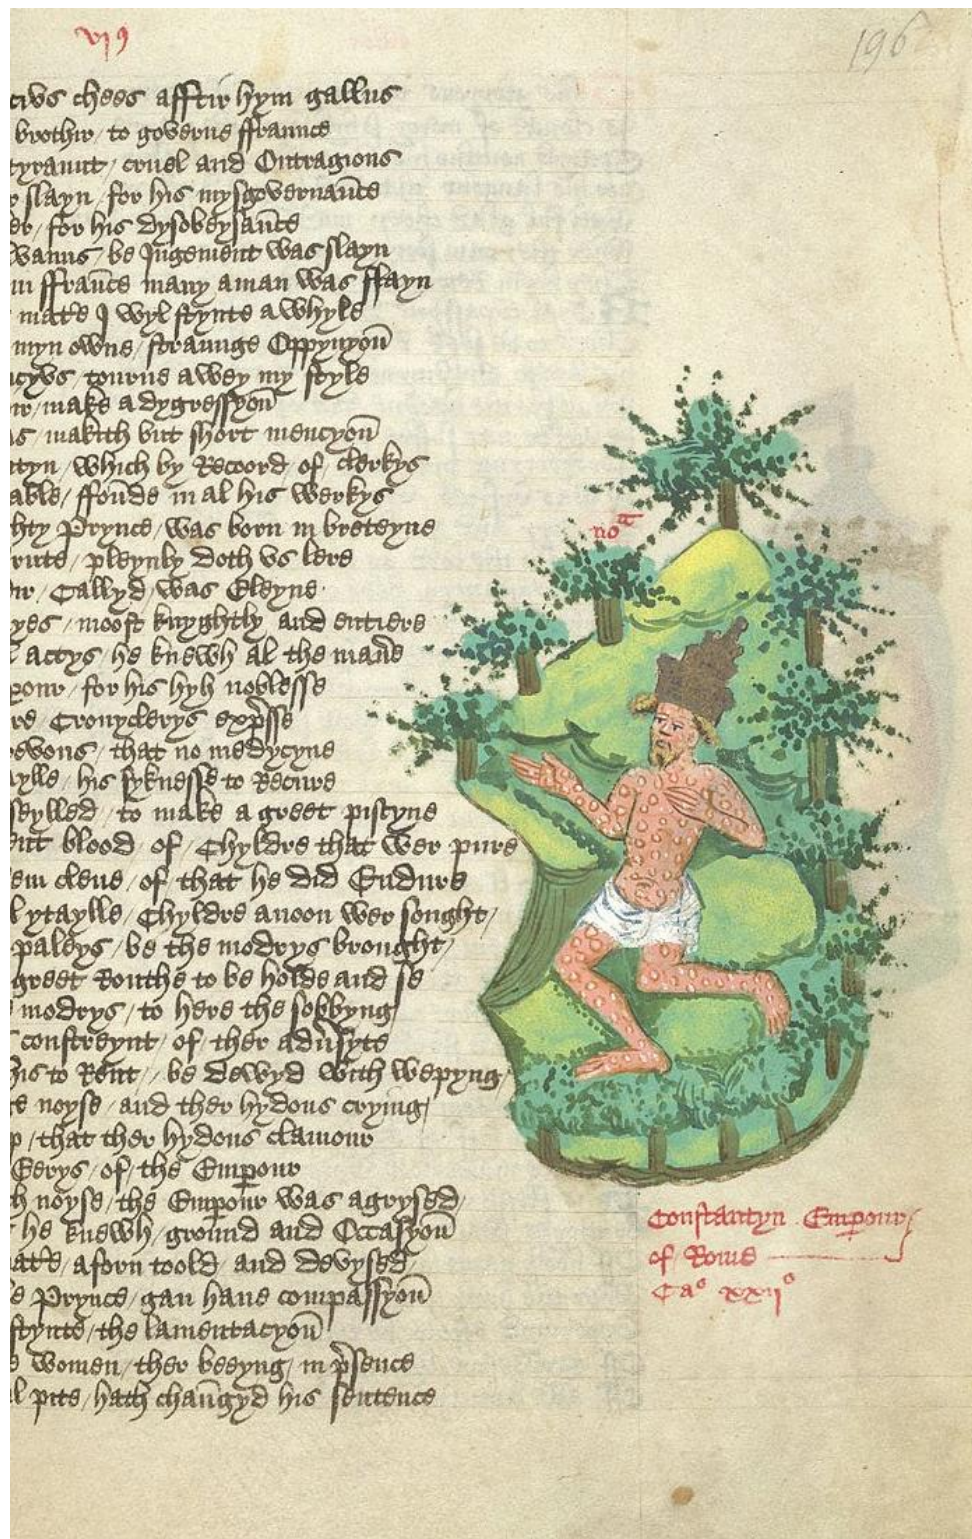 vi9
196
civs chees afftir hym gallus
brothir / to governe ffraunce
tyraunt / cruel and Outragious
slayn / for his mysgovernaūce
for his dysobeysaūce
be Iugement was slayn
in ffraūce many a man was slayn
mater I wyl stynte a whyle
myn owne / straunge Oppynyoū
tourne awey my style
make a dygressyoū
makith but short mencyoū
which by Recoord / of / clerkys
able / ffoūde in al his werkys
hty Prynce / was born in breteyne
pleynly doth vs lere
Callyd / was Eleyne
moost knyghtly and entieere
actys / he knewh al the maneere
for his hyh noblesse
Cronyclerys expresse
that no medycyne
aylle / his syknesse to Recure
seylled / to make a greet piscyne
ent blood / of / Chyldre that wer pure
clene / of that he did Endure
lytaylle / Chyldre anoon wer sought /
paleys / be the modrys brought /
greet Routhe to be holde and se
modrys / to here the sobbyng
constreynt / of / ther adversyte
to Rent / be dewyd with wepyng /
noyse / and ther hydous crying /
that ther hydous clamour
Eerys / of / the Emperour
noyse / the Emperour was agrysed /
he knewh / ground and Occasyoū
aforn toold / and devysed /
Prynce / gan have compassyoū
stynte / the lamentacyoū
women / ther beeyng / in presence
pite / hath chaūgyd his sentence
noa
Constantyn Emperour
of Rome
Cao xxiio